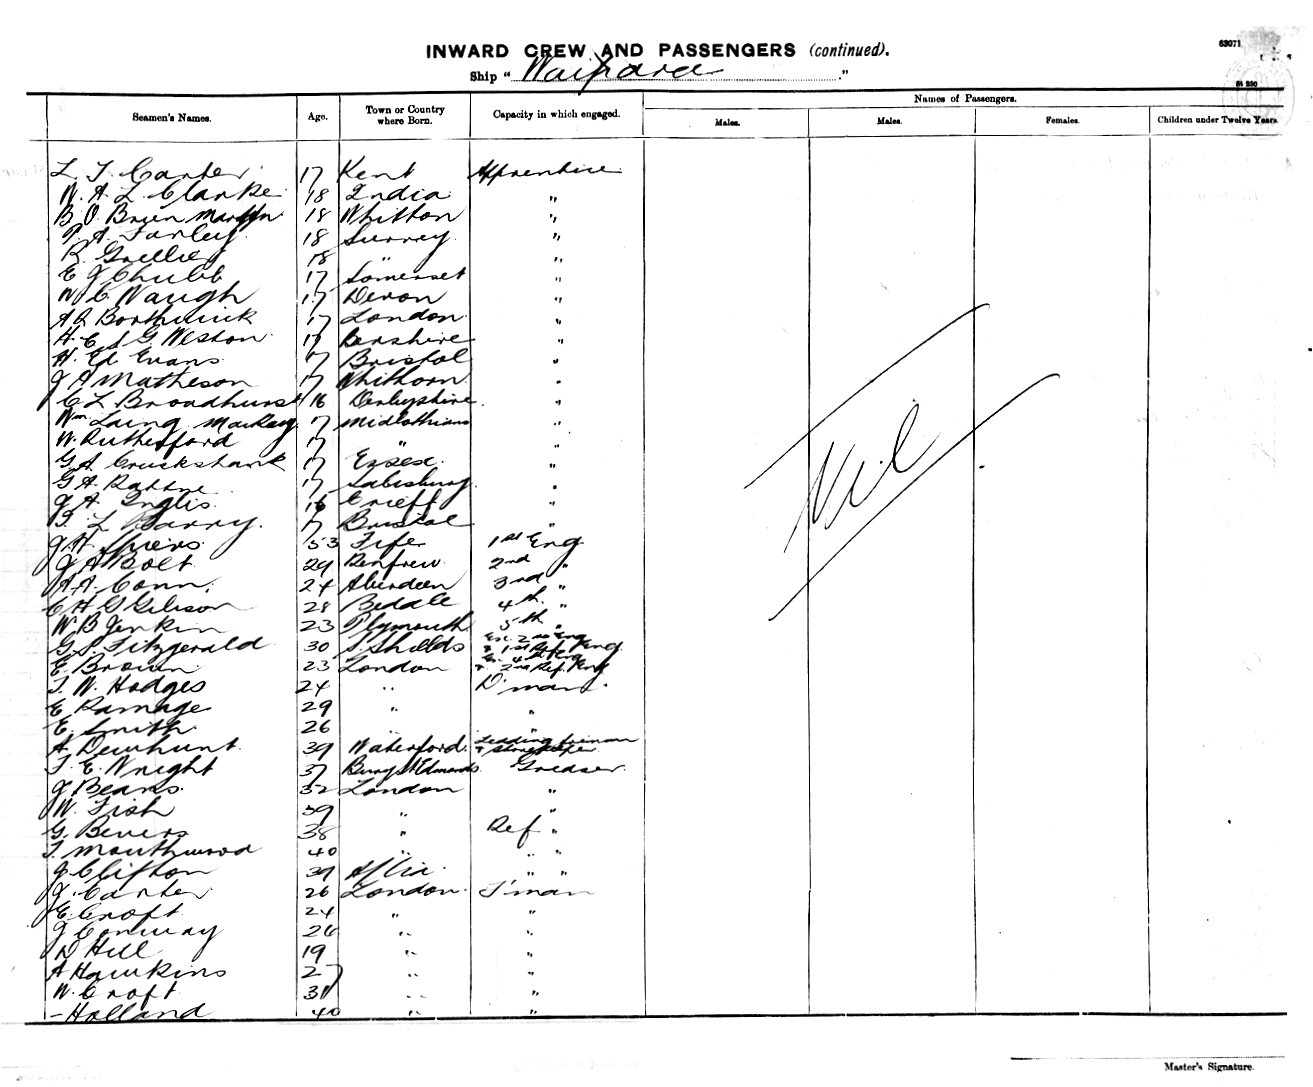 63071
INWARD CREW AND PASSENGERS (continued).
Ship "Waipara"
Seamen's Names. Age. Town or Country where Born. Capacity in which engaged. Names of Passengers.
Males. Males. Females. Children under Twelve Years.
L. T. Carter 17 Kent Apprentice
W. A. L. Clarke 18 India "
B. O. Brien Martyn 18 Whitton "
P. A. Farley 18 Surrey "
R. Grellier 18 " "
E J Chubb 17 Somerset "
W C Waugh 17 Devon "
A R Borthwick 17 London "
H. E S G Weston 17 Bershire "
H. Ed Evans 17 Bristol "
J A Matheson 17 Whithorn "
C L Broadhurst 16 Derbyshire "
Wm Laing Mackay 17 Midlothian "
W. Rutherford 17 " "
G A Cruckshank 17 Essex "
G A 17 Salisbury "
J A Inglis 16 Crieff "
T. L Barry 17 Bristol "
J H Shiers 53 Fife 1st Eng
J A Bolt 29 Renfrew 2nd "
A A. Conn 24 Aberdeen 3rd "
C H G Gibson 28 Bedale 4th "
W B Jenkin 23 Plymouth 5th "
G. S. Fitzgerald 30 S. Shields Ex. 2nd Eng & 1st Ref. Eng
E. Brown 23 London Ex. 4th Eng & 2nd Ref. Eng
T. W. Hodges 24 " D'man
E Ramage 29 " "
E. Smith 26 "
A Dewhunt 39 Waterford Leading fireman & storekeeper
T. E. Wright 37 Bury St Edmonds Greaser
J Beans 32 London "
W. Fish 39 " "
G. Bevers 38 " Ref "
T. Mouthwood 40 " " "
J Clifton 39 A/lia " "
J. Carter 26 London F'man
E. Croft 24 " "
J Conway 26 " "
D Hill 19 " "
A Hawkins 27 " "
W. Croft 31 " "
- Holland 40 " "
Nil
Master's Signature.